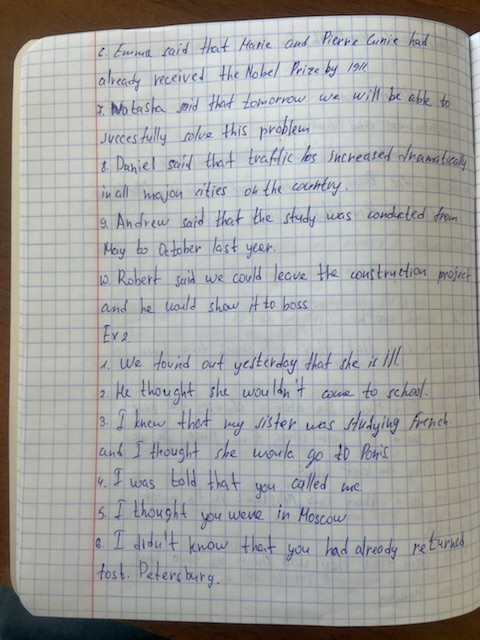 6. Emma said that Marie and Pierre Curie had
already received the Nobel Prize by 1911.
7. Natasha said that tomorrow we will be able to
succesfully solve this problem
8. Daniel said that traffic has increased dramatically
in all major cities on the country.
9. Andrew said that the study was conducted from
May to October last year.
10. Robert said we could leave the construction project
and he would show it to boss
Ex 2
1. We found out yesterday that she is ill.
2. He thought she wouldn't come to school.
3. I knew that my sister was studying French
and I thought she would go to Paris
4. I was told that you called me
5. I thought you were in Moscow
6. I didn't know that you had already returned
to st. Petersburg.